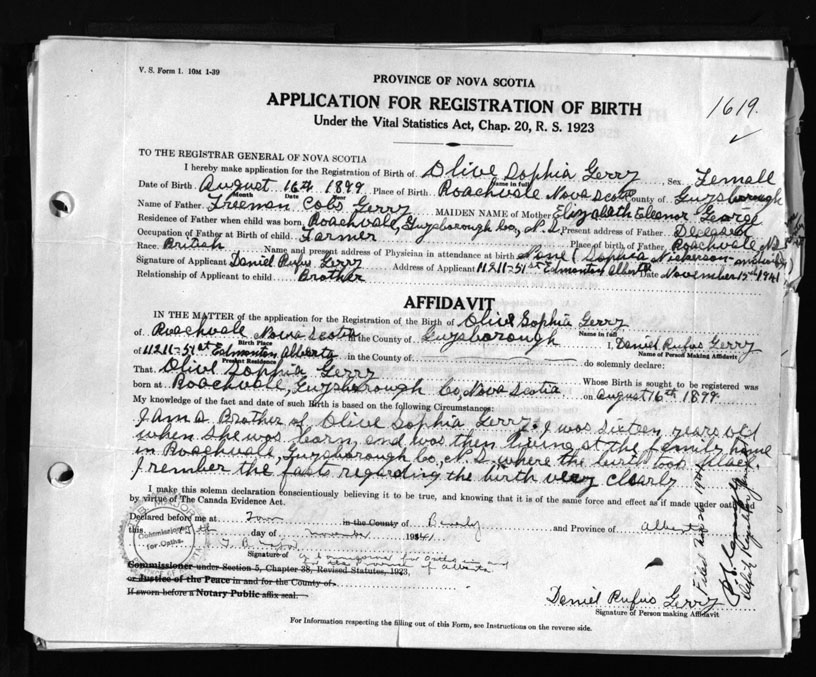 V. S. Form 1. 10M 1-39
PROVINCE OF NOVA SCOTIA
APPLICATION FOR REGISTRATION OF BIRTH
1619.
Under the Vital Statistics Act, Chap. 20, R. S. 1923
TO THE REGISTRAR GENERAL OF NOVA SCOTIA
I hereby make application for the Registration of Birth of Olive Sophia Gerry Sex Female
Name in full
Date of Birth August 16th 1899 Place of Birth Roachvale Nova Scotia County of Guysborough
Month Date Year
Name of Father Freeman Cobb Gerry MAIDEN NAME of Mother Elizabeth Eleanor George
Residence of Father when child was born Roachvale, Guysborough Co, N.S. Present address of Father Deceased
Occupation of Father at Birth of child Farmer Place of birth of Father Roachvale, N.S.
Race British Name and present address of Physician in attendance at birth None (Sophia Nickerson-midwife)
Signature of Applicant Daniel Rufus Gerry Address of Applicant 11211-51st Edmonton Alberta Date November 15th 1941
Relationship of Applicant to child Brother
AFFIDAVIT
IN THE MATTER of the application for the Registration of the Birth of Olive Sophia Gerry
Name in full
of Roachvale Nova Scotia in the County of Guysborough I, Daniel Rufus Gerry
Birth Place Name of Person Making Affidavit
of 11211-51st Edmonton Alberta in the County of do solemnly declare:
Present Residence
That Olive Sophia Gerry Whose Birth is sought to be registered was
born at Roachvale, Guysborough Co, Nova Scotia on August 16th 1899
My knowledge of the fact and date of such Birth is based on the following Circumstances:
I am a Brother of Olive Sophia Gerry. I was sixteen years old
when she was born, and was then living at the family home
in Roachvale, Guysborough Co, N.S. where the birth took place.
I rember the facts regarding the birth very clearly
I make this solemn declaration conscientiously believing it to be true, and knowing that it is of the same force and effect as if made under oath and
by virtue of The Canada Evidence Act.
Declared before me at Town in the County of Beverly and Province of Alberta
this day of November 1941
Commissioner for Oaths.
Signature of a Commissioner for Oaths in and
the Province of Alberta
Commissioner under Section 5, Chapter 38, Revised Statutes, 1923,
or Justice of the Peace in and for the County of
If sworn before a Notary Public affix seal.
Daniel Rufus Gerry
Signature of Person making Affidavit
For Information respecting the filling out of this Form, see Instructions on the reverse side.